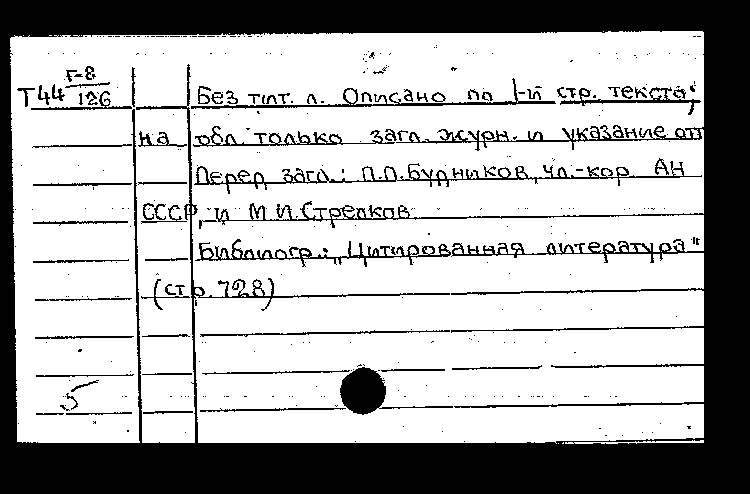 Г-8
Т44 126
Без тит. л. Описано по 1-й стр. текста;
на обл. только загл. журн. и указание отт
Перед загл.: П.П.Будников, чл.-кор. АН
СССР, и М.И.Стрелков.
Библиогр.: „Цитированная литература"
(стр. 728)
5